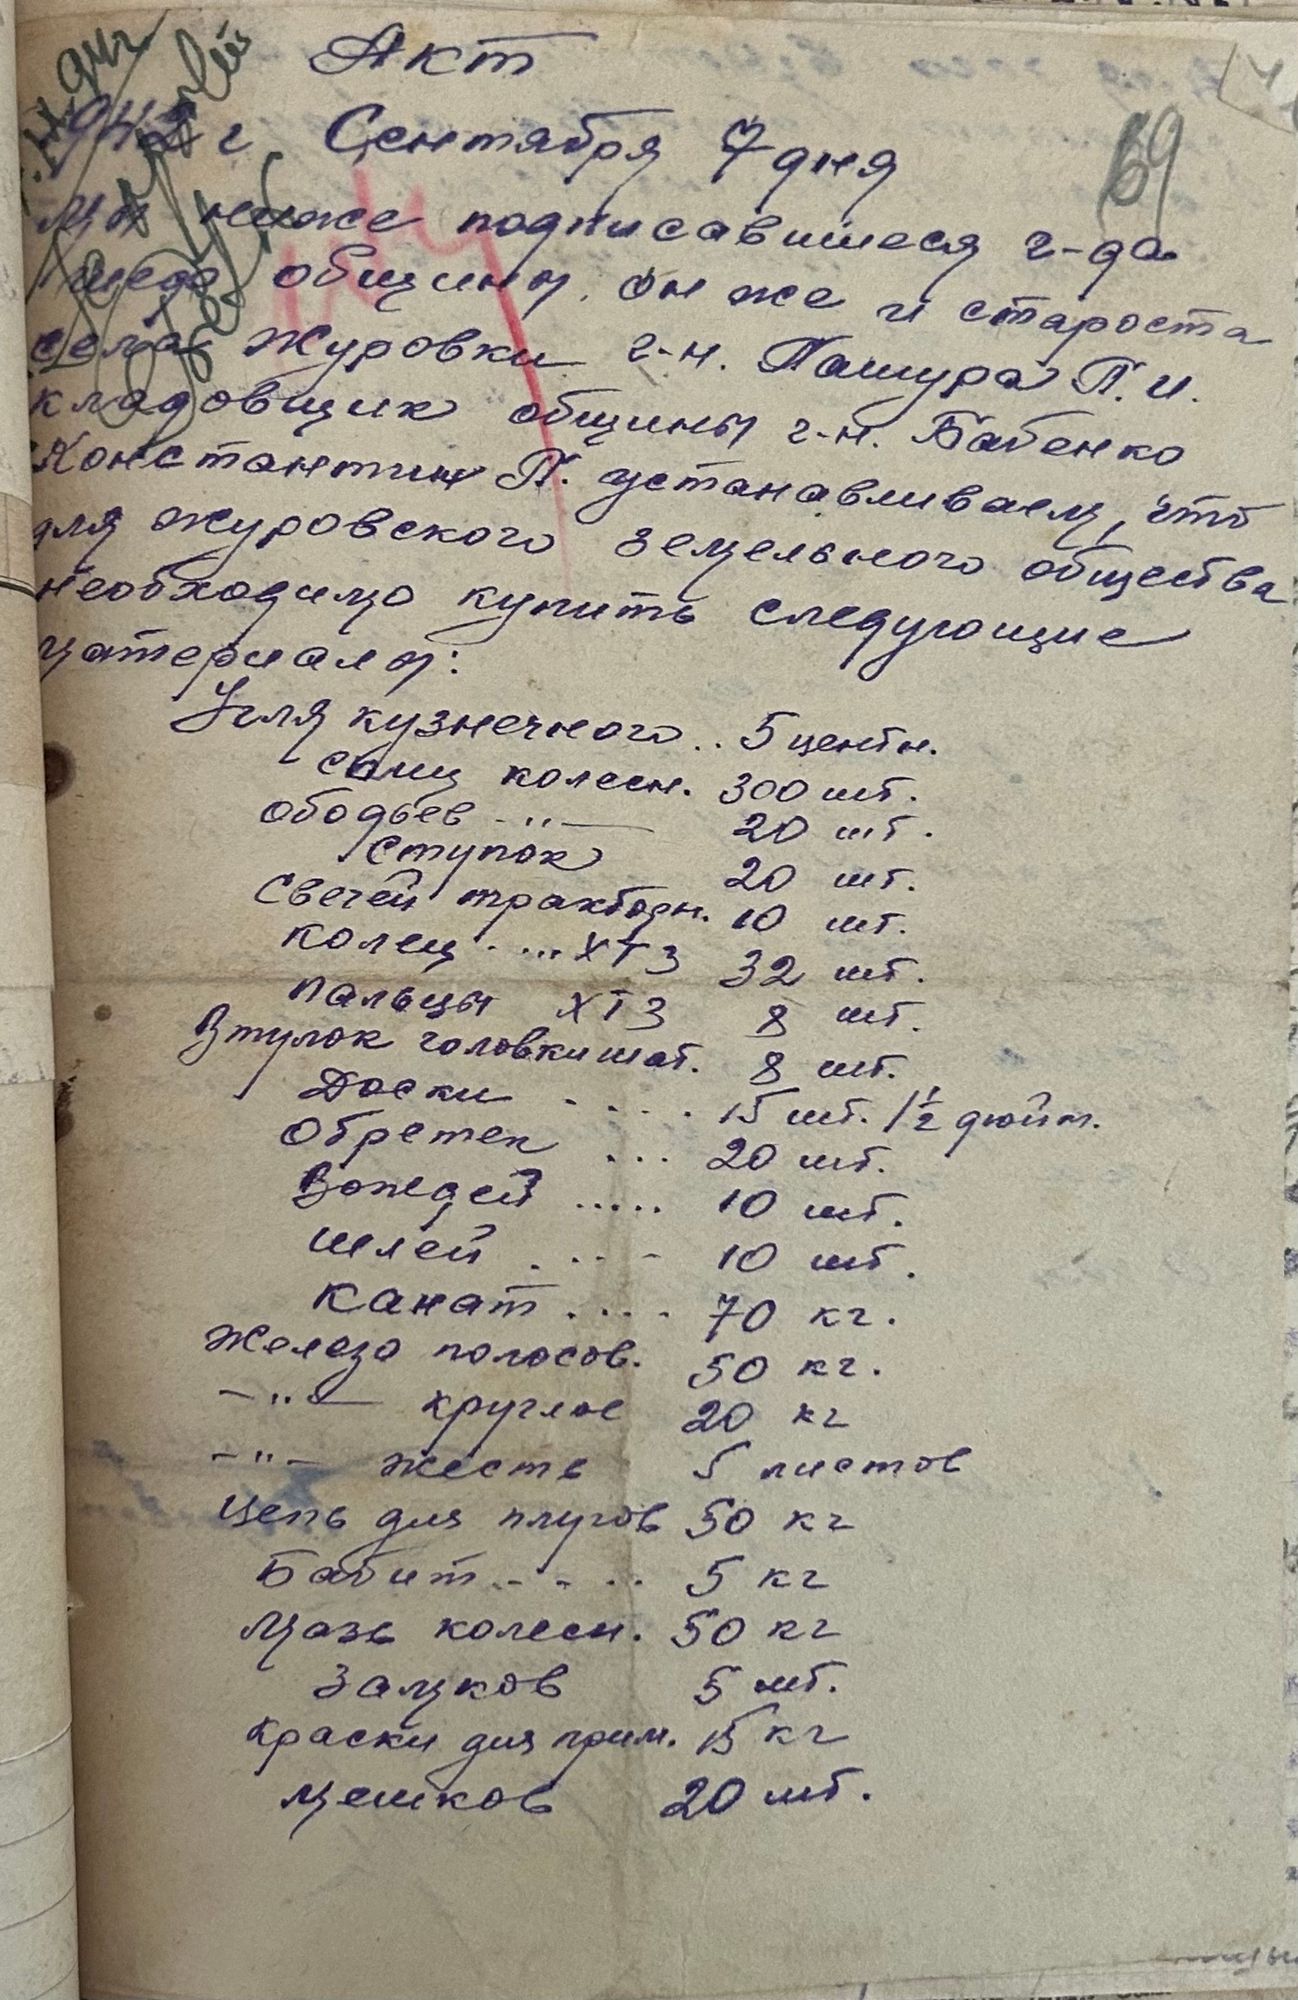 Акт
942 г Сентября 7 дня
69
Мы ниже подписавшиеся г-да
шеф общины, он же и староста
села Журовки г-н. Пашура П. И.
кладовщик общины г-н. Бабенко
Константин П. устанавливаем, что
для журовского земельного общества
необходимо купить следующие
материалы:
Угля кузнечного .. 5 центн.
Спиц колесн. 300 шт.
Ободьев -"- 20 шт.
Ступок 20 шт.
Свечей тракторн. 10 шт.
Колец .... ХТЗ 32 шт.
Пальцы ХТЗ 8 шт.
Втулок головки шат. 8 шт.
Доски .... 15 шт. 1 1/2 дюйм.
Обретек ... 20 шт.
Вождей ..... 10 шт.
Шлей .... 10 шт.
Канат .... 70 кг.
Железо полосов. 50 кг.
-"- круглое 20 кг
-"- жесть 5 листов
Цепь для плугов 50 кг
Бабит .... 5 кг
Мазь колесн. 50 кг
Замков 5 шт.
Краски для прим. 15 кг
Мешков 20 шт.